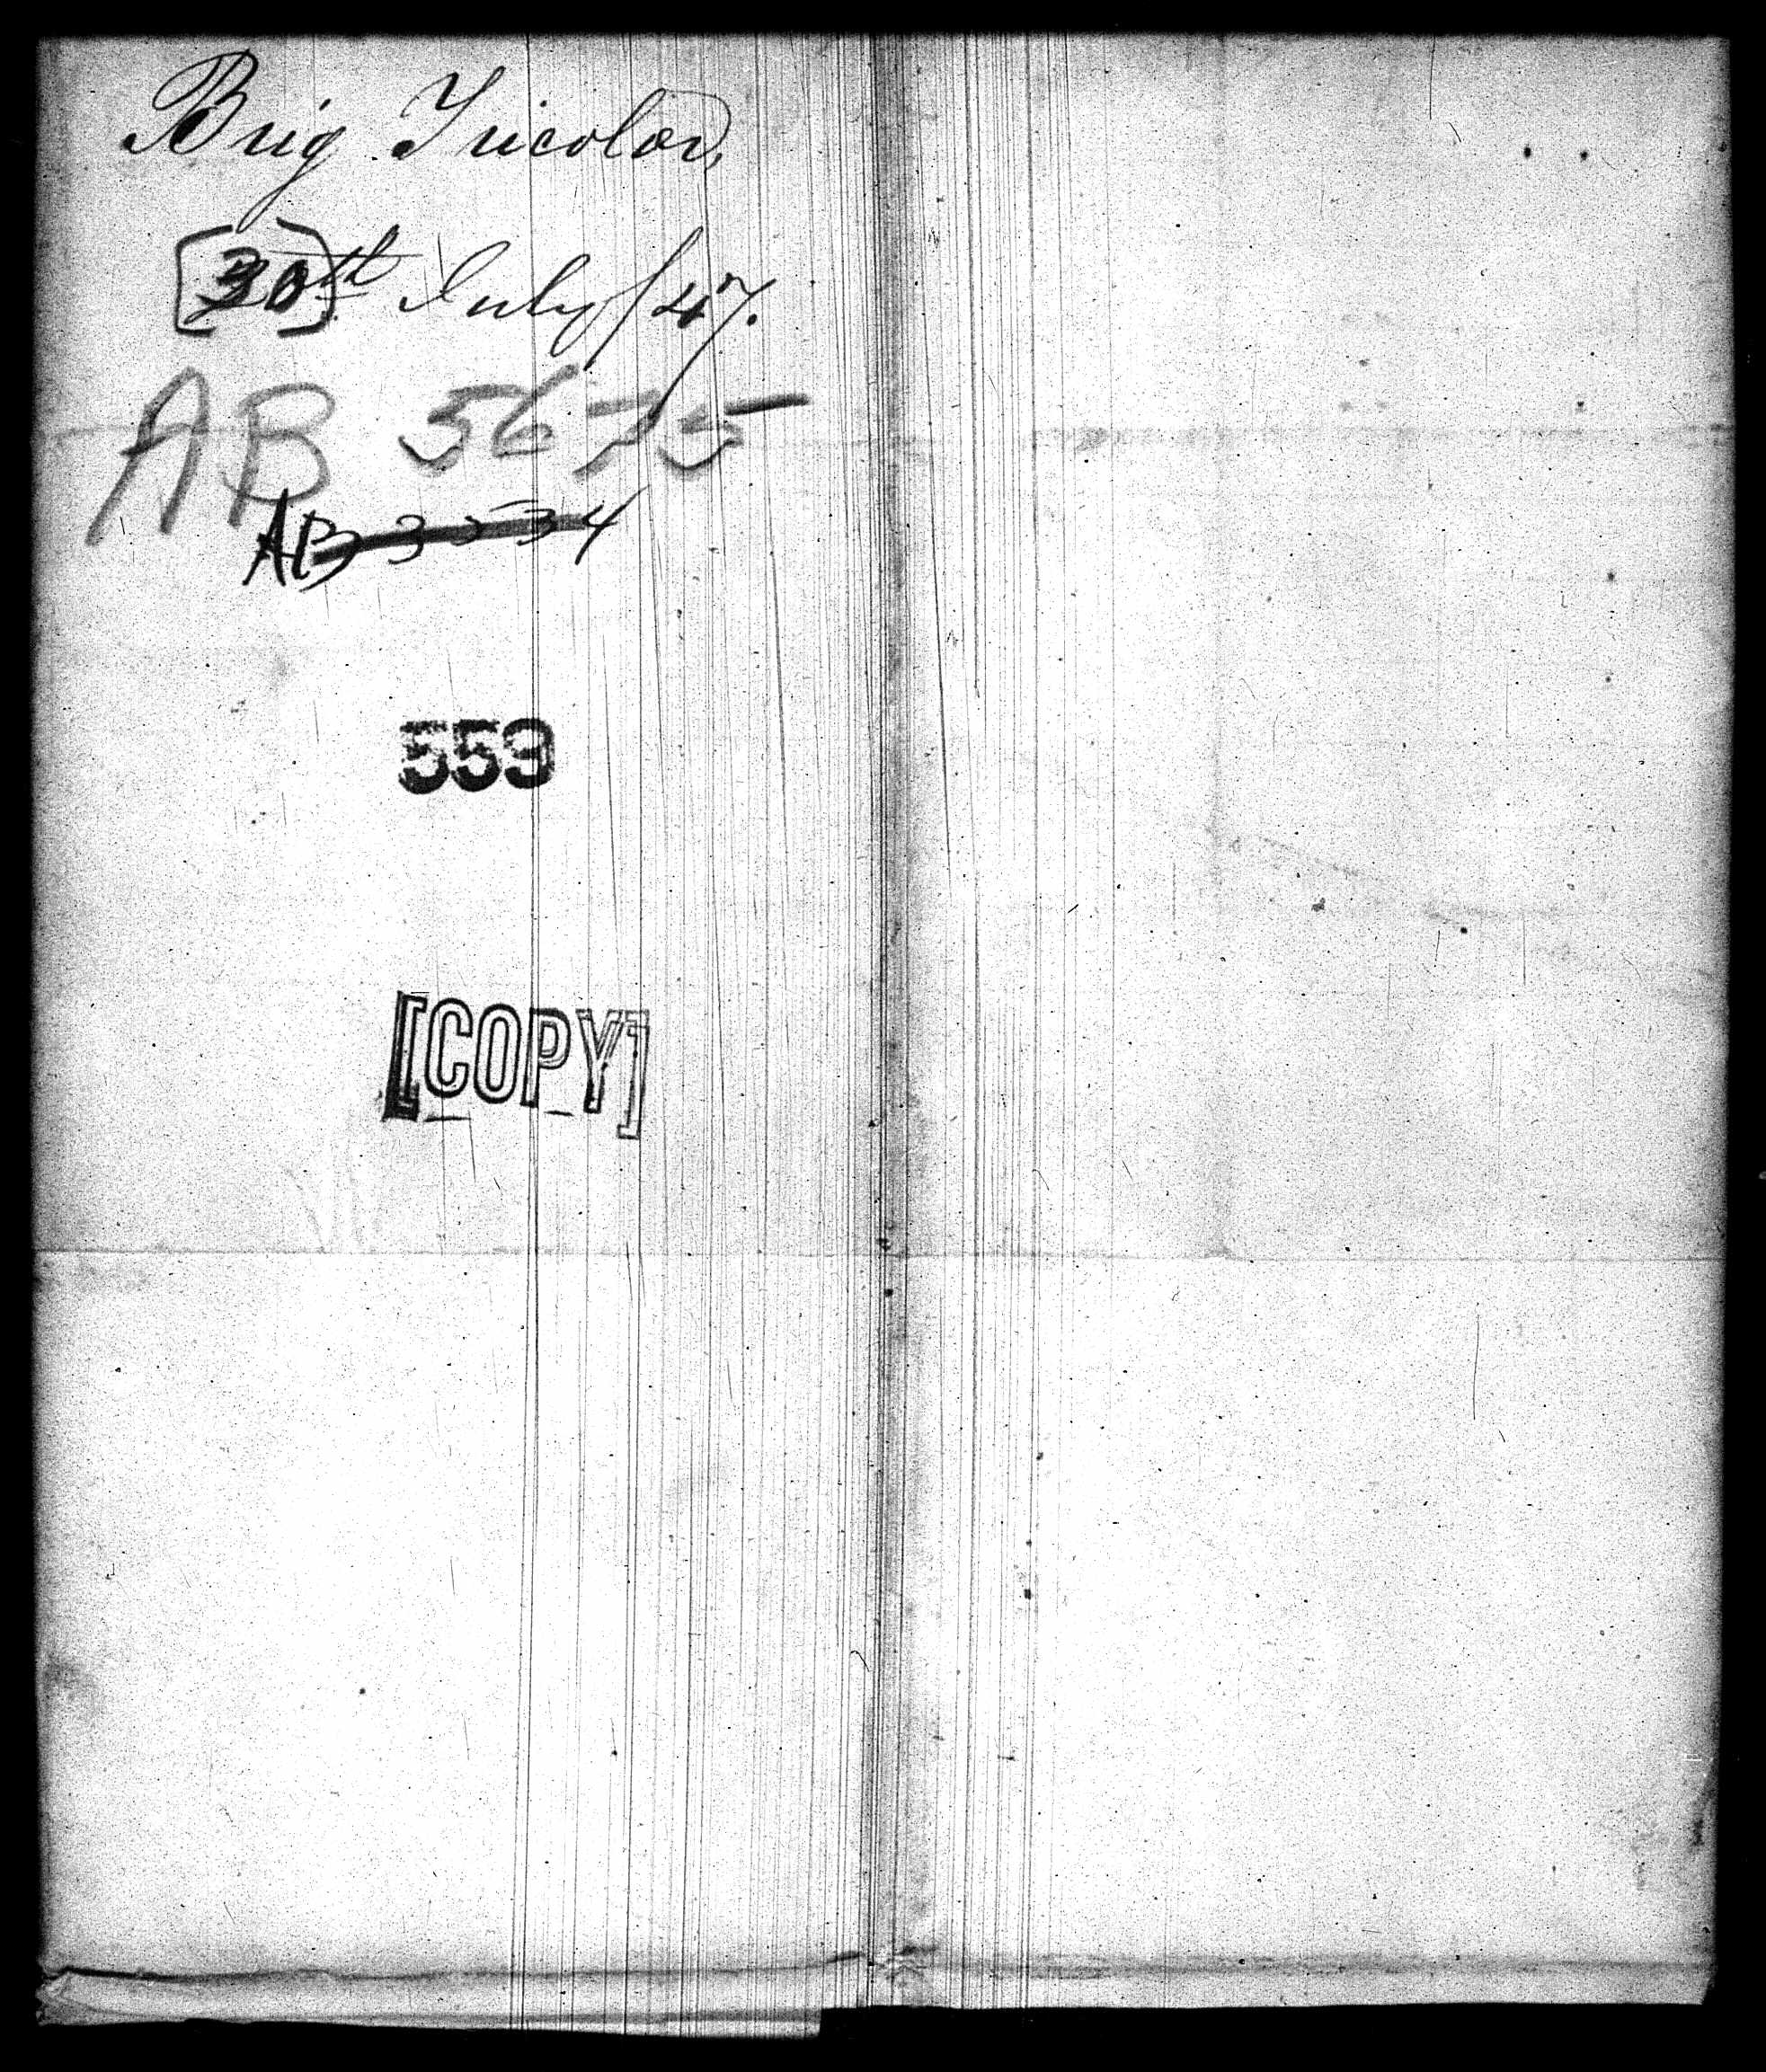 Brig Tricolor,
[30]th July /47.
AB 5675
AB 3534
559
[COPY]